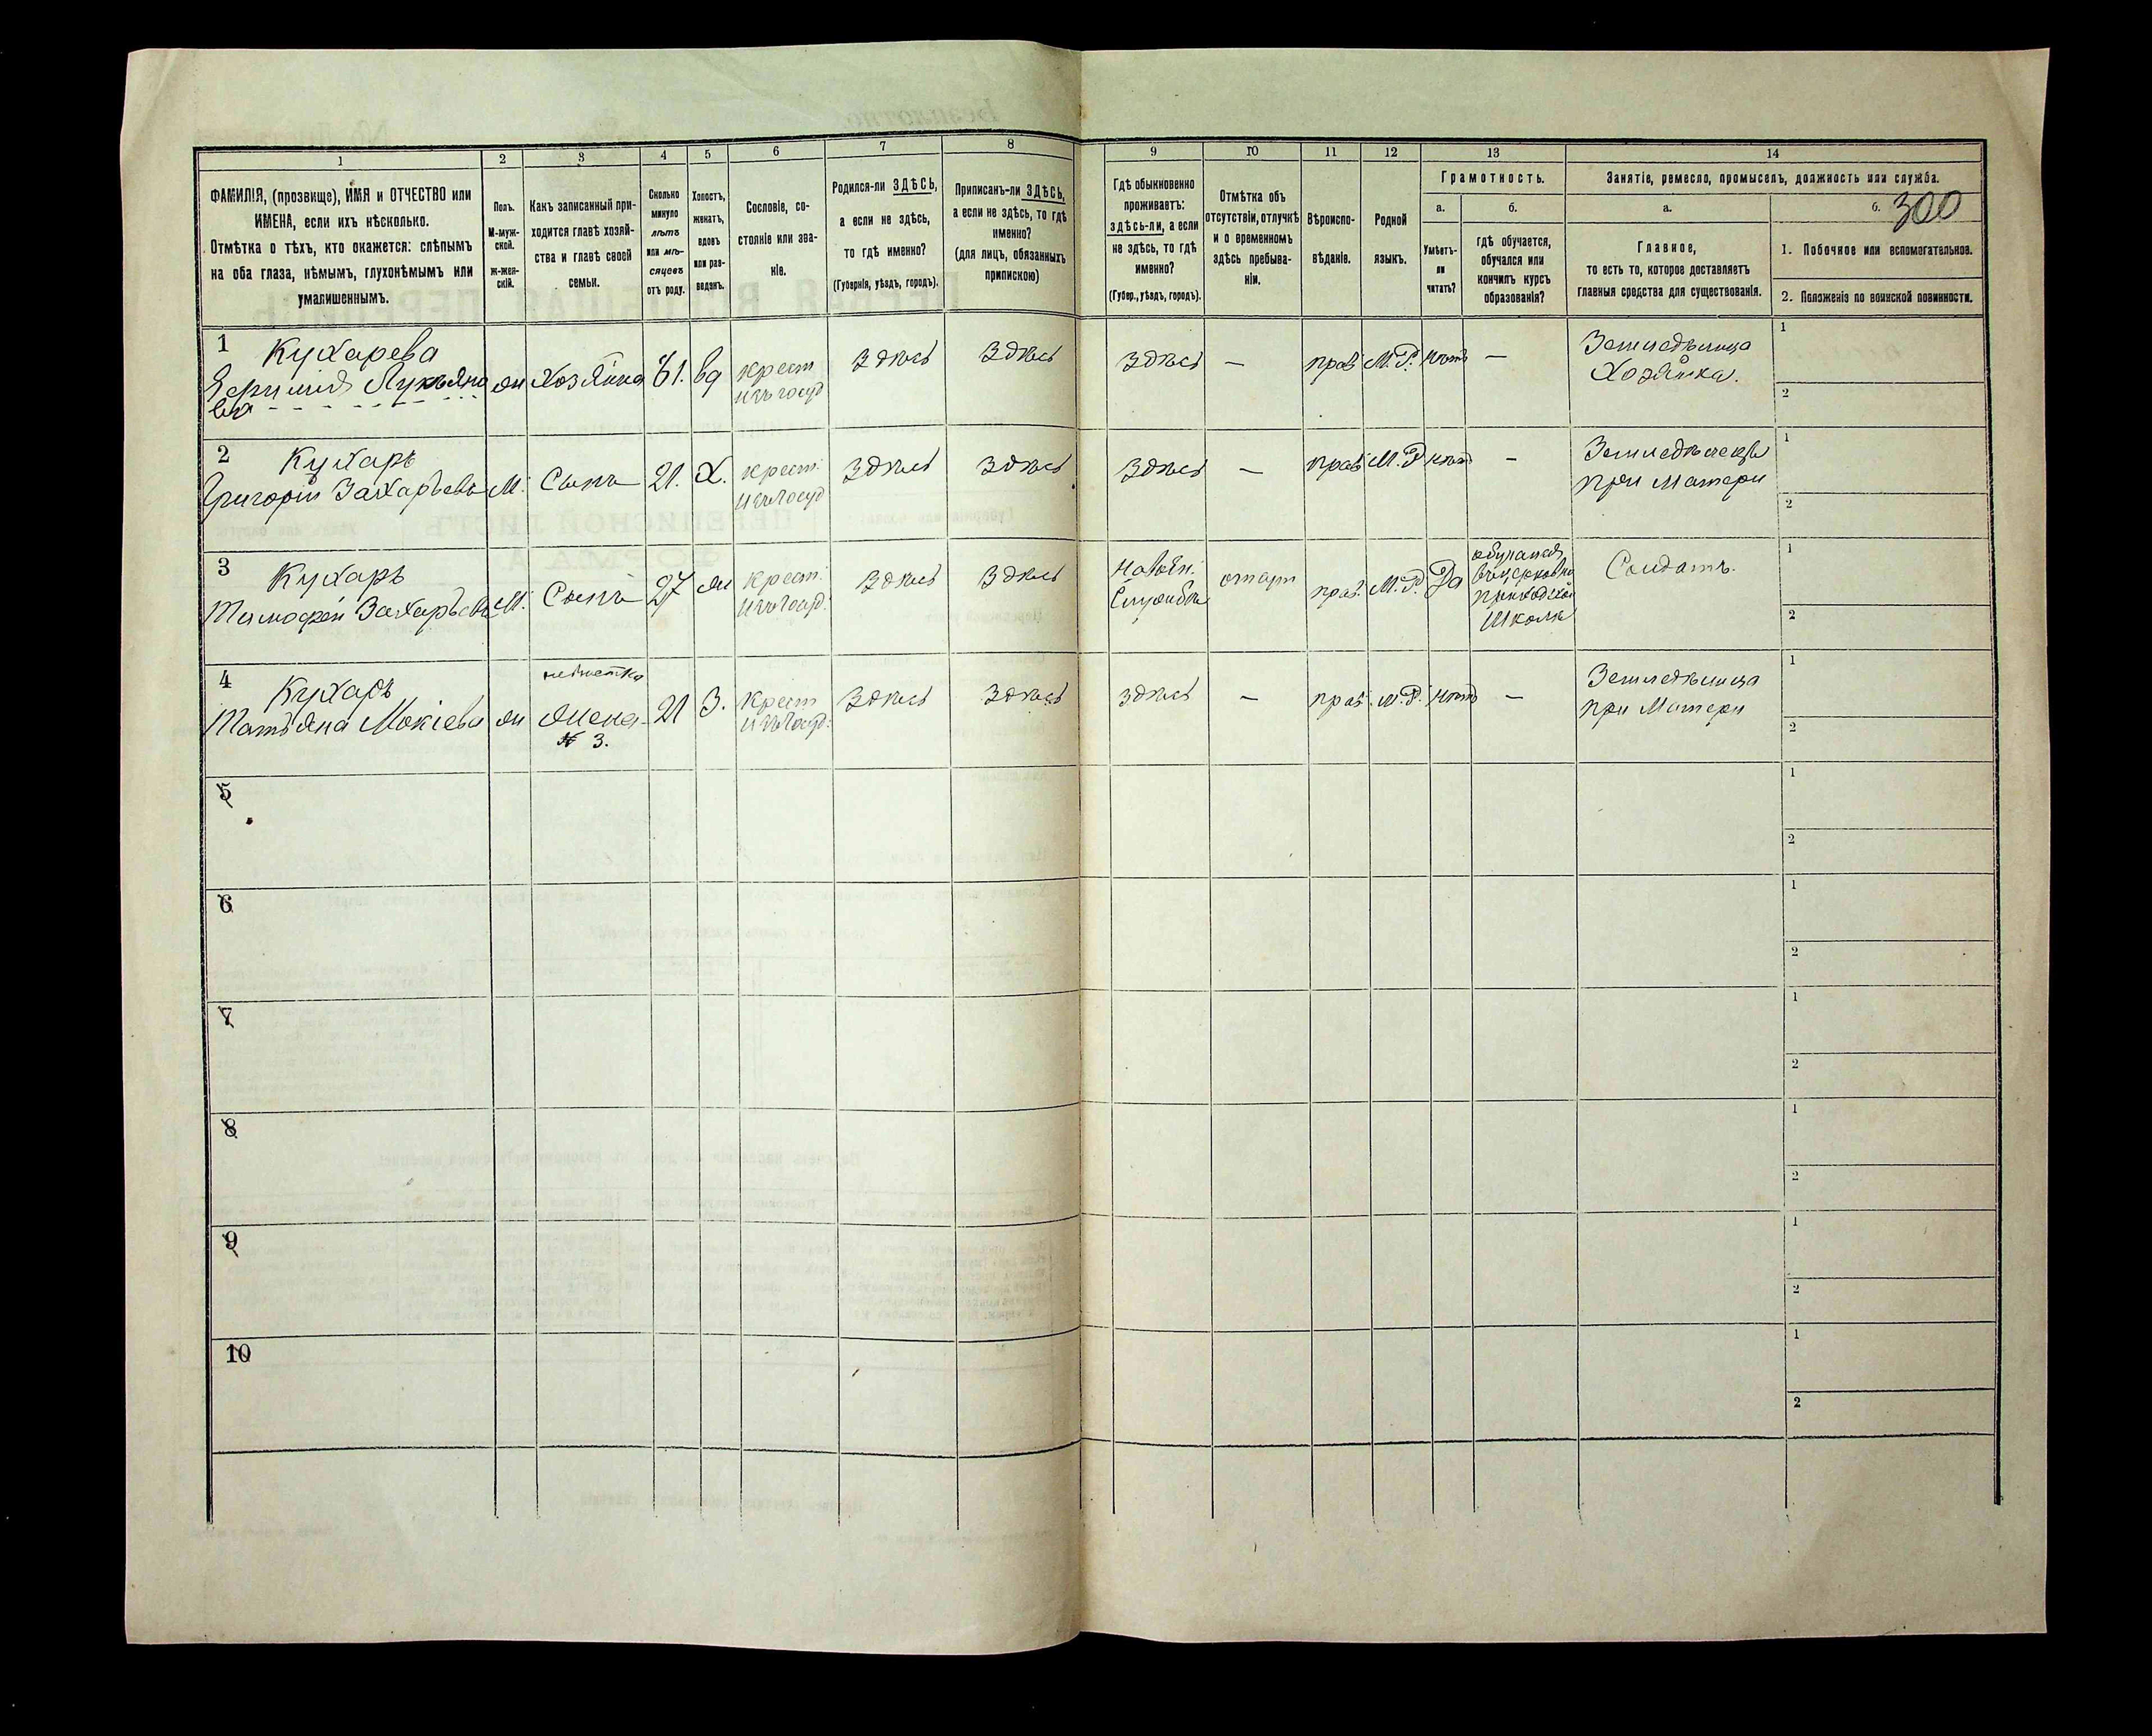 300
1 2 3 4 5 6 7 8 9 10 11 12 13 14
ФАМИЛІЯ, (прозвище), ИМЯ и ОТЧЕСТВО или
ИМЕНА, если ихъ нѣсколько.
Отмѣтка о тѣхъ, кто окажется: слѣпымъ
на оба глаза, нѣмымъ, глухонѣмымъ или
умалишеннымъ.
Полъ.
М-муж-
ской.
ж-жен-
скій.
Какъ записанный при-
ходится главѣ хозяй-
ства и главѣ своей
семьи.
Сколько
минуло
лѣтъ
или мѣ-
сяцевъ
отъ роду.
Холостъ,
женатъ,
вдовъ
или раз-
веденъ.
Сословіе, со-
стояніе или зва-
ніе.
Родился-ли ЗДѢСЬ,
а если не здѣсь,
то гдѣ именно?
(Губернія, уѣздъ, городъ).
Приписанъ-ли ЗДѢСЬ,
а если не здѣсь, то гдѣ
именно?
(для лицъ, обязанныхъ
припискою)
Гдѣ обыкновенно
проживаетъ:
здѣсь-ли, а если
не здѣсь, то гдѣ
именно?
(Губер., уѣздъ, городъ).
Отмѣтка объ
отсутствіи, отлучкѣ
и о временномъ
здѣсь пребыва-
ніи.
Вѣроиспо-
вѣданіе.
Родной
языкъ.
Грамотность.
а.
Умѣетъ-
ли
читать?
б.
гдѣ обучается,
обучался или
кончилъ курсъ
образованія?
Занятіе, ремесло, промыселъ, должность или служба.
а.
Главное,
то есть то, которое доставляетъ
главныя средства для существованія.
б.
1. Побочное или вспомогательное.
2. Положеніе по воинской повинности.
1 Кухарева
Лукьяно
ва
ж
Хозяйка
61.
вд
крест
изъ госуд
Здѣсь
Здѣсь
Здѣсь
—
прав
М. Р.
нѣтъ
—
Земледѣлица
Хозяйка.
1
2
2 Кухарь
Григорій Захарьевъ
М.
Сынъ
21.
Х.
крест.
изъ госуд
Здѣсь
Здѣсь
Здѣсь
—
прав
М. Р
нѣтъ
—
Земледѣлецъ
при Матери
1
2
3 Кухарь
Тимофей Захарьевъ
М.
Сынъ
27
ж
крест.
изъ госуд.
Здѣсь
Здѣсь
На воен.
Службѣ
прав.
М. Р.
Да
обучался
въ церковно
приходской
Школѣ
Солдатъ.
1
2
4 Кухарь
Татьяна Мокіева
ж
невѣстка
Жена
№ 3.
21
З.
крест
изъ госуд.
Здѣсь
Здѣсь
Здѣсь
—
прав.
М. Р.
нѣтъ
—
Земледѣлица
при Матери
1
2
5
1
2
6
1
2
7
1
2
8
1
2
9
1
2
10
1
2